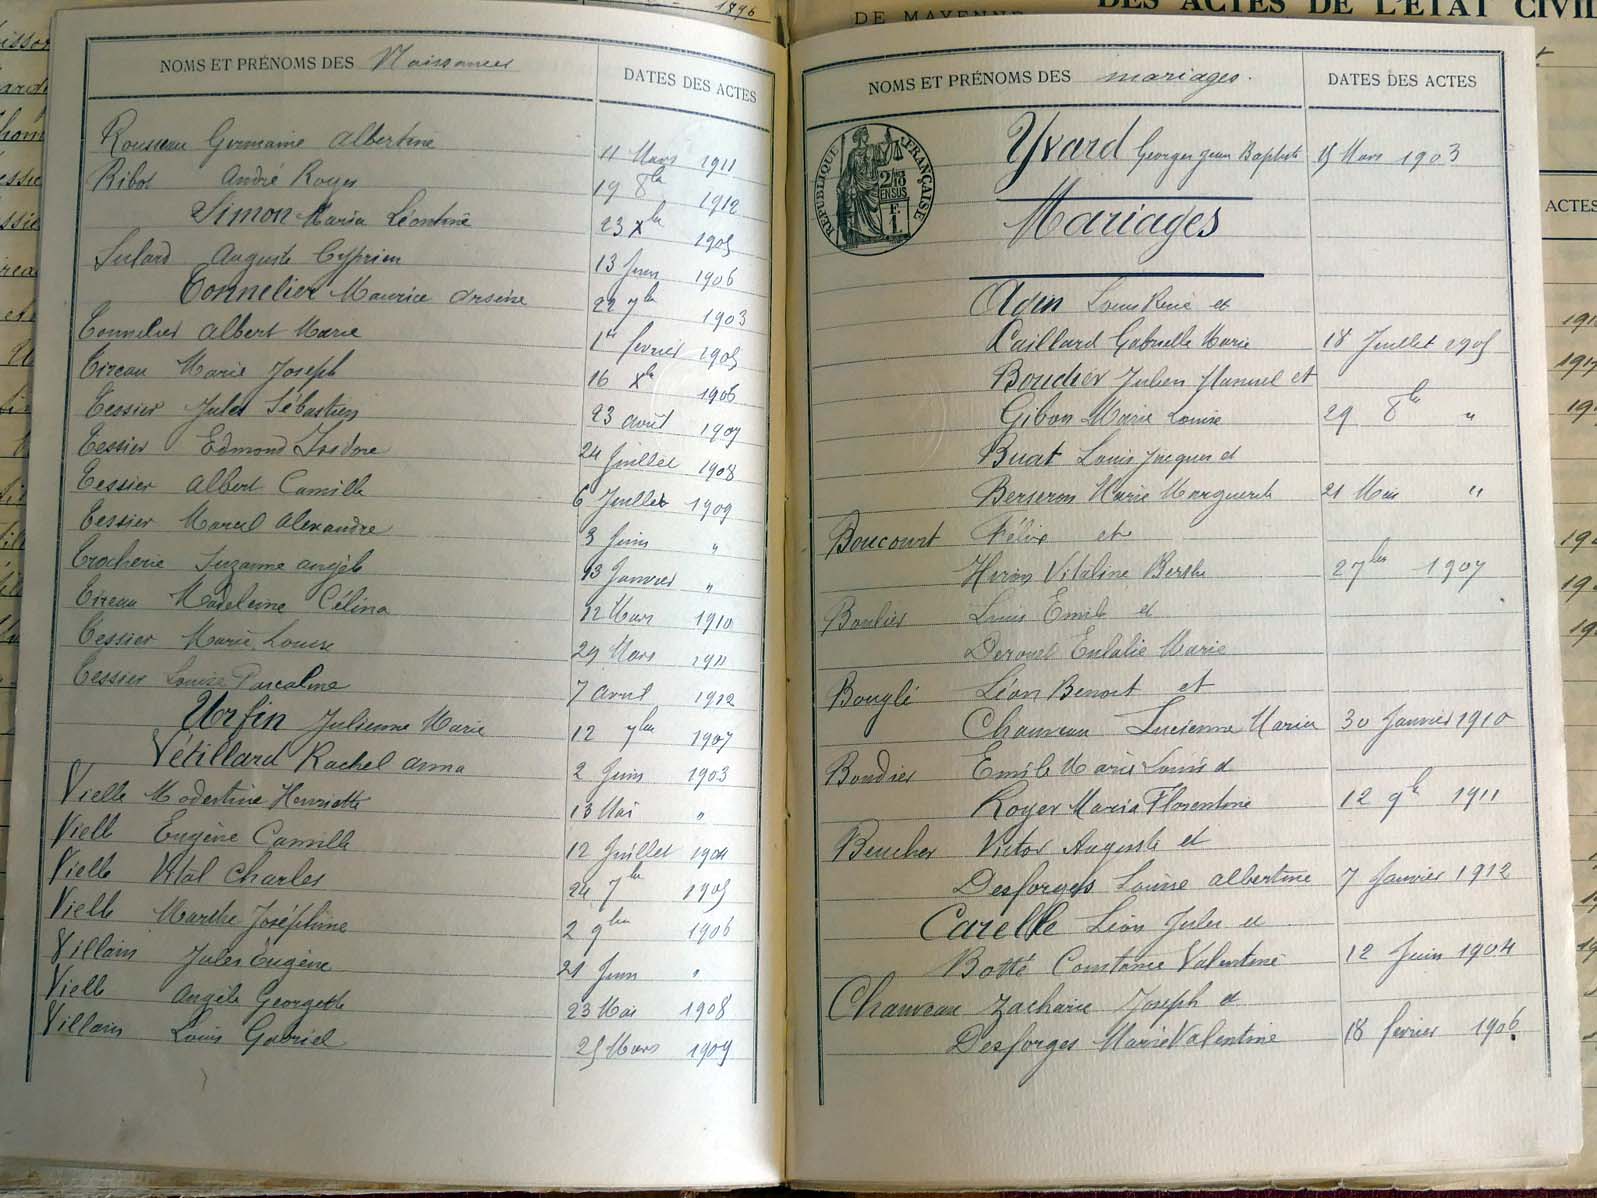 1896
NOMS ET PRÉNOMS DES Naissances
DATES DES ACTES
Rousseau Germaine Albertine 11 Mars 1911
Ribot André Roger 19 8bre 1912
Simon Maria Léontine 23 Xbre 1905
Sulard Auguste Cyprien 13 Juin 1906
Tonnelier Maurice Arsène 22 7bre 1903
Tonnelier Albert Marie 1er février 1905
Tireau Marie Joseph 16 Xbre 1906
Tessier Jules Sébastien 23 août 1907
Tessier Edmond Isidore 24 Juillet 1908
Tessier Albert Camille 6 Juillet 1909
Tessier Marcel Alexandre 3 Juin "
Trocherie Suzanne Angèle 13 Janvier "
Tireau Madeleine Célina 12 Mars 1910
Tessier Marie Louise 29 Mars 1911
Tessier Louise Pascaline 7 Avril 1912
Urfin Julienne Marie 12 7bre 1907
Vétillard Rachel Anna 2 Juin 1903
Vielle Modestine Henriette 13 Mai "
Vielle Eugène Camille 12 Juillet 1904
Vielle Vital Charles 24 7bre 1905
Vielle Marthe Joséphine 2 9bre 1906
Villain Jules Eugène 21 Juin "
Vielle Angèle Georgette 23 Mai 1908
Villain Louis Gabriel 25 Mars 1909
DE MAYENNE
DES ACTES DE L'ÉTAT CIVIL
NOMS ET PRÉNOMS DES mariages.
DATES DES ACTES
RÉPUBLIQUE FRANÇAISE
2/10
EN SUS
F.
1.
Yvard Georges Jean Baptiste 15 Mars 1903
Mariages
Adin Louis René et
Caillard Gabrielle Marie 18 Juillet 1905
Boucher Julien Manuel et
Gibon Marie Louise 29 8bre "
Buat Louis Jacques et
Berseron Marie Marguerite 21 Mai "
Boucourt Félix et
Héron Vitaline Berthe 2 7bre 1907
Boulier Louis Emile et
Derouet Eulalie Marie
Bouglé Léon Benoit et
Chauveau Lucienne Maria 30 Janvier 1910
Boudier Emile Marie Louis et
Royer Maria Florentine 12 9bre 1911
Beucher Victor Auguste et
Desforges Louise Albertine 7 Janvier 1912
Carelle Léon Jules et
Botté Constance Valentine 12 Juin 1904
Chauveau Zacharie Joseph et
Desforges Marie Valentine 18 février 1906.
ACTES